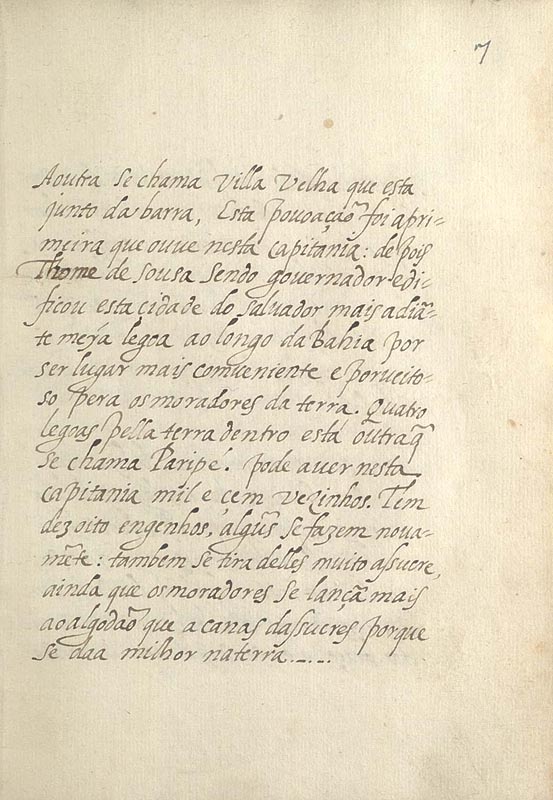 7
Aoutra se chama villa velha que esta
junto da barra, Esta povoaçaõ foi apri=
meira que ouve nesta capitania: depois
Thome de sousa sendo governador edi=
ficou esta cidade do salvador mais adiã=
te meya legoa ao longo da Bahia por
ser lugar mais comveniente e porveito=
so pera os moradores da terra. Quatro
legoas pella terra dentro está outra q̃
se chama Paripé. pode aver nesta
capitania mil e çem vezinhos. Tem
dezoito engenhos, algũs se fazem nova=
mẽte: tambem se tira delles muito assucre,
ainda que os moradores se lançã mais
ao algodaõ que a canas dassucres porque
se daa milhor na terra.....